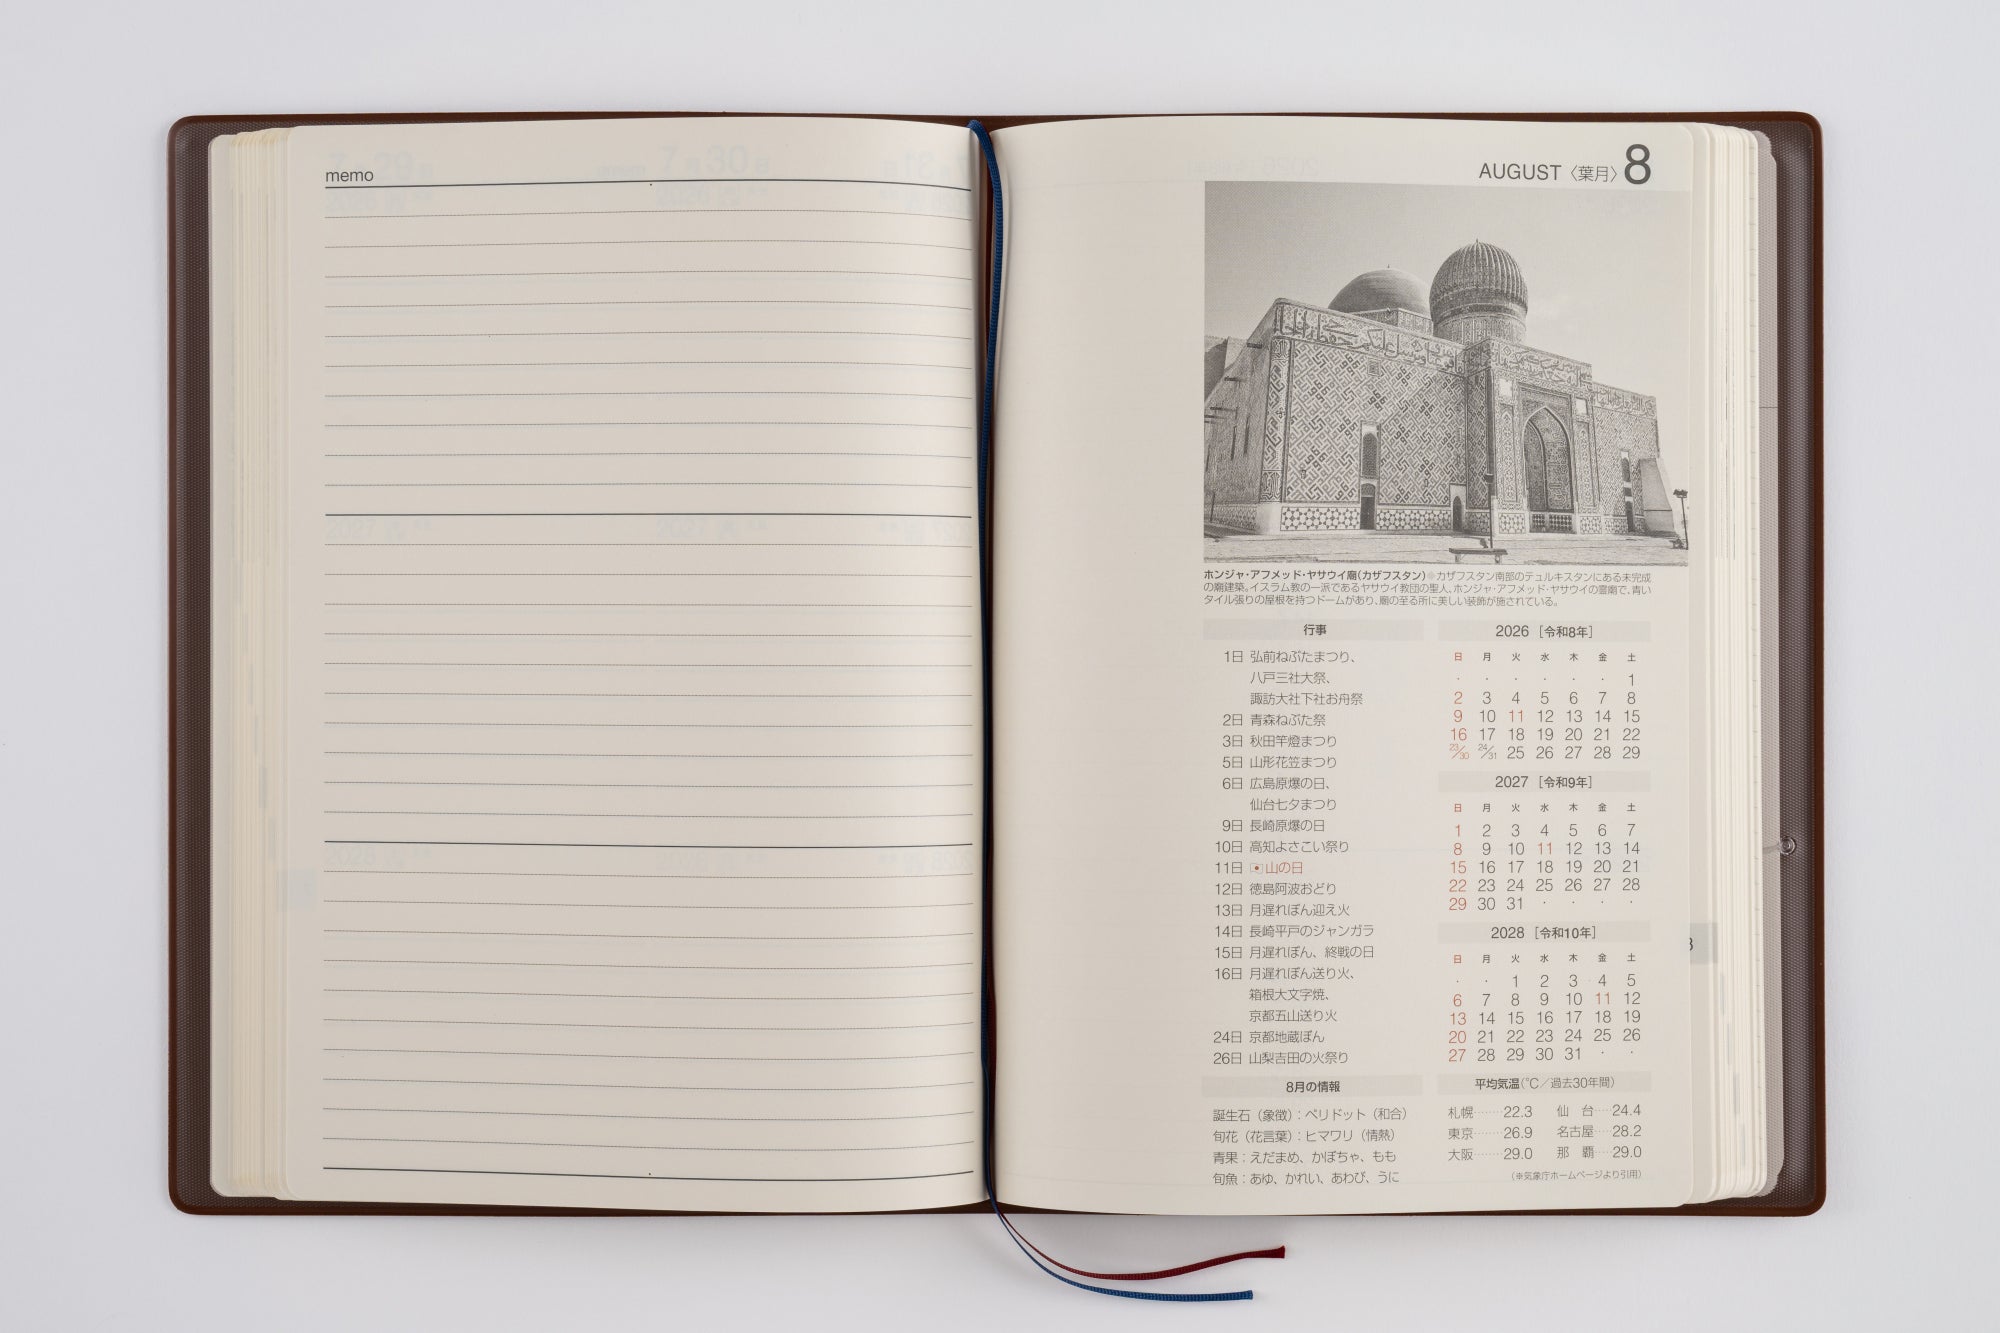 memo
AUGUST〈葉月〉8
ホンジャ・アフメッド・ヤサウイ廟(カザフスタン)●カザフスタン南部のテュルキスタンにある未完成
の廟建築。イスラム教の一派であるヤサウイ教団の聖人、ホンジャ・アフメッド・ヤサウイの霊廟で、青い
タイル張りの屋根を持つドームがあり、廟の至る所に美しい装飾が施されている。
行事
1日 弘前ねぷたまつり、
八戸三社大祭、
諏訪大社下社お舟祭
2日 青森ねぶた祭
3日 秋田竿燈まつり
5日 山形花笠まつり
6日 広島原爆の日、
仙台七夕まつり
9日 長崎原爆の日
10日 高知よさこい祭り
11日 山の日
12日 徳島阿波おどり
13日 月遅れぼん迎え火
14日 長崎平戸のジャンガラ
15日 月遅れぼん、終戦の日
16日 月遅れぼん送り火、
箱根大文字焼、
京都五山送り火
24日 京都地蔵ぼん
26日 山梨吉田の火祭り
8月の情報
誕生石(象徴):ペリドット(和合)
旬花(花言葉):ヒマワリ(情熱)
青果:えだまめ、かぼちゃ、もも
旬魚:あゆ、かれい、あわび、うに
2026 [令和8年]
日 月 火 水 木 金 土
・ ・ ・ ・ ・ ・ 1
2 3 4 5 6 7 8
9 10 11 12 13 14 15
16 17 18 19 20 21 22
23/30 24/31 25 26 27 28 29
2027 [令和9年]
日 月 火 水 木 金 土
1 2 3 4 5 6 7
8 9 10 11 12 13 14
15 16 17 18 19 20 21
22 23 24 25 26 27 28
29 30 31 ・ ・ ・ ・
2028 [令和10年]
日 月 火 水 木 金 土
・ ・ 1 2 3 4 5
6 7 8 9 10 11 12
13 14 15 16 17 18 19
20 21 22 23 24 25 26
27 28 29 30 31 ・ ・
平均気温(℃/過去30年間)
札幌……22.3 仙 台…24.4
東京……26.9 名古屋…28.2
大阪……29.0 那 覇…29.0
(※気象庁ホームページより引用)